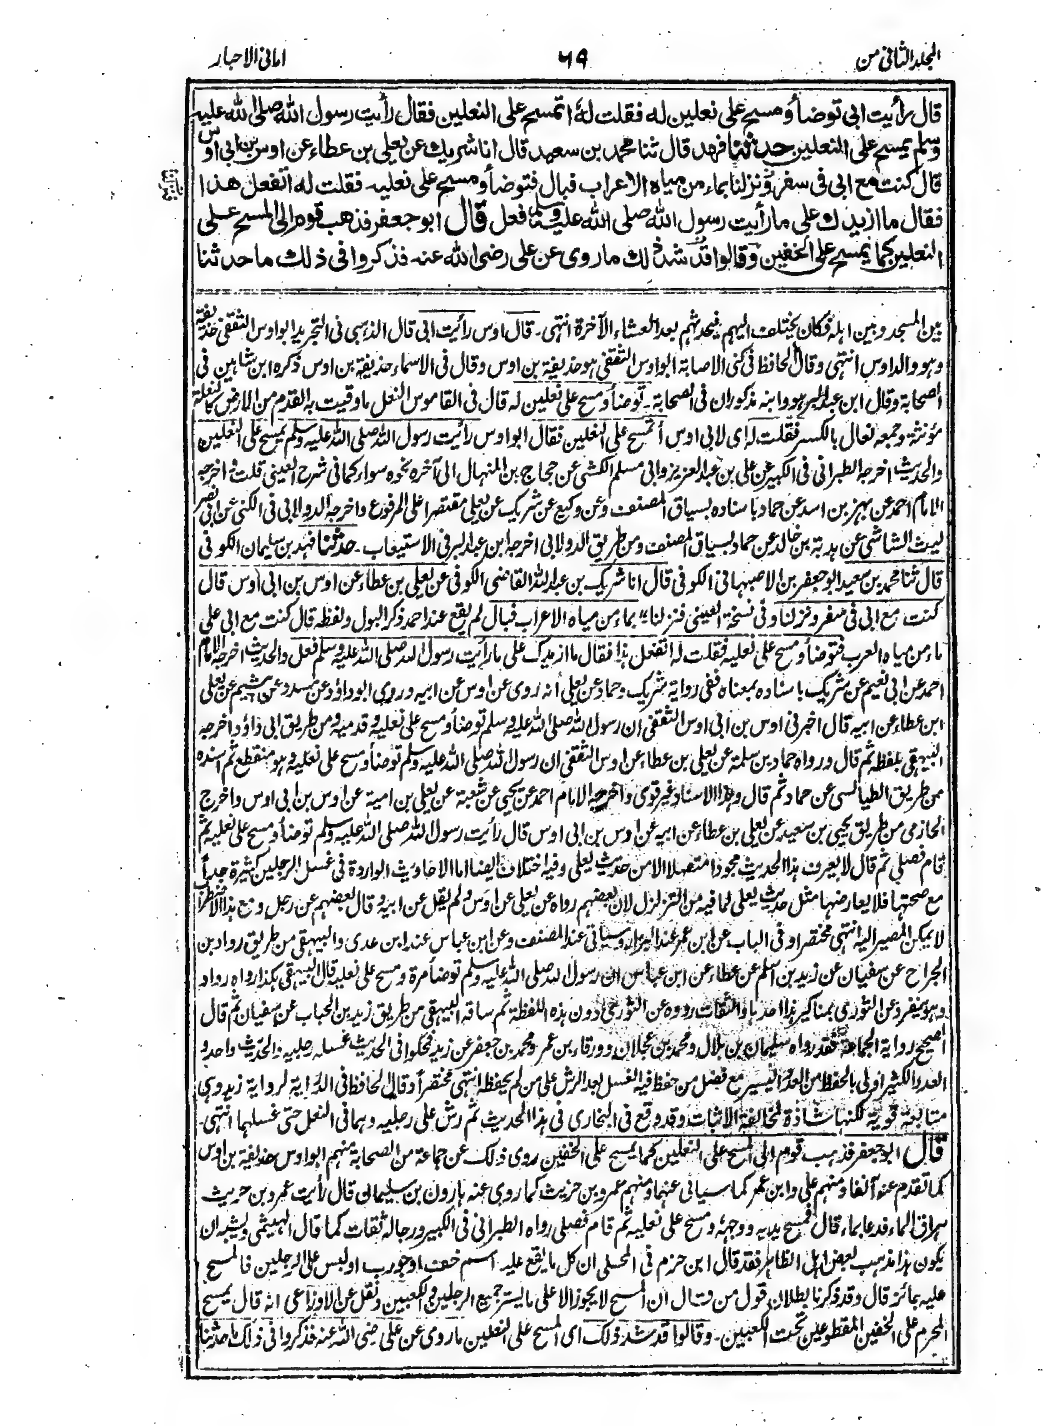 المجلد الثانی من
٦٩
امانی الاحبار
قال رأيت ابی توضأ ومسح علی نعلين له فقلت لهٗ اتمسح علی النعلين فقال رأيت رسول الله صلی الله عليه
وسلم يمسح علی النعلين حدثنا فهد قال ثنا محمد بن سعيد قال انا شريك عن يعلی بن عطاء عن اوس بن ابی اوس
قال كنت مع ابی فی سفر ونزلنا بماء من مياه الاعراب فبال فتوضأ ومسح علی نعليه فقلت له اتفعل هذا
فقال ما ازيدك علی ما رأيت رسول الله صلی الله عليه وسلم فعل قال ابو جعفر فذهب قوم الی المسح علی
النعلين كما يمسح علی الخفين وقالوا قد شد ذلك ما روی عن علی رضی الله عنه فذكروا فی ذلك ما حدثنا
بين المسجد وبين اهله فكان يختلف اليهم فيحدثهم بعد العشاء الآخرة انتهی۔ قال اوس رأيت ابی قال الذهبی فی التجريد ابو اوس الثقفی حذيفة
وهو والد اوس انتهی وقال الحافظ فی كنی الاصابة ابو اوس الثقفی هو حذيفة بن اوس وقال فی الاسماء حذيفة بن اوس ذكره ابن شاهين فی
الصحابة وقال ابن عبد البر هو وابنه مذكوران فی الصحابة۔ توضأ ومسح علی نعلين له قال فی القاموس النعل ما وقيت به القدم من الارض كالنعلة
مؤنثة وجمعه نعال بالكسر فقلت له ای لابی اوس أتمسح علی النعلين فقال ابو اوس رأيت رسول الله صلی الله عليه وسلم يمسح علی النعلين
والحديث اخرجه الطبرانی فی الكبير عن علی بن عبد العزيز وابی مسلم الكشی عن حجاج بن المنهال الی آخره نحوه سواء كما فی شرح العينی قلت واخرجه
الامام احمد عن بهز بن اسد عن حماد باسناده بسياق المصنف وعن وكيع عن شريك عن يعلی مقتصرا علی المرفوع واخرجه الدولابی فی الكنی عن ابی نصر
ليث الشاشی عن هدبة بن خالد عن حماد بسياق المصنف ومن طريق الدولابی اخرجه ابن عبد البر فی الاستيعاب۔ حدثنا فهد بن سليمان الكوفی
قال ثنا محمد بن سعيد ابو جعفر بن الاصبهانی الكوفی قال انا شريك بن عبد الله القاضی الكوفی عن يعلی بن عطاء عن اوس بن ابی اوس قال
كنت مع ابی فی سفر ونزلنا وفی نسخة العينی فنزلنا بماء من مياه الاعراب فبال لم يقع عند احمد ذكر البول ولفظه قال كنت مع ابی علی
ماء من مياه العرب فتوضأ ومسح علی نعليه فقلت له اتفعل هذا فقال ما ازيدك علی ما رأيت رسول الله صلی الله عليه وسلم فعل والحديث اخرجه الامام
احمد عن ابی نعيم عن شريك باسناده بمعناه ففی رواية شريك وحماد عن يعلی أنه روی عن اوس عن ابيه وروی ابو داؤد عن مسدد عن هشيم عن يعلی
ابن عطاء عن ابيه قال اخبرنی اوس بن ابی اوس الثقفی ان رسول الله صلی الله عليه وسلم توضأ ومسح علی نعليه وقدميه ومن طريق ابی داؤد اخرجه
البيهقی بلفظه ثم قال ورواه حماد بن سلمة عن يعلی بن عطاء عن اوس الثقفی ان رسول الله صلی الله عليه وسلم توضأ ومسح علی نعليه وهو منقطع ثم اسنده
من طريق الطيالسی عن حماد ثم قال وهذا الاسناد غير قوی واخرجه الامام احمد عن يحيی عن شعبة عن يعلی بن امية عن اوس بن ابی اوس واخرج
الحازمی من طريق يحيی بن سعيد عن يعلی بن عطاء عن ابيه عن اوس بن ابی اوس قال رأيت رسول الله صلی الله عليه وسلم توضأ ومسح علی نعليه ثم
قام فصلی ثم قال لا يعرف هذا الحديث مجودا متصلا الا من حديث يعلی وفيه اختلاف ايضا اما الاحاديث الواردة فی غسل الرجلين كثيرة جداً
مع صحتها فلا يعارضها مثل حديث يعلی لما فيه من التزلزل لان بعضهم رواه عن يعلی عن اوس ولم يقل عن ابيه وقال بعضهم عن رجل ومع هذا الاضطراب
لا يمكن المصير اليه انتهی مختصرا وفی الباب عن ابن عمر عند البزار وسياتی عند المصنف وعن ابن عباس عند ابن عدی والبيهقی من طريق رواد بن
الجراح عن سفيان عن زيد بن اسلم عن عطاء عن ابن عباس ان رسول الله صلی الله عليه وسلم توضأ مرة ومسح علی نعليه قال البيهقی هكذا رواه رواد
وهو ينفرد عن الثوری بمناكير هذا احدها والثقات رووه عن الثوری دون هذه اللفظة ثم ساقه البيهقی من طريق زيد بن الحباب عن سفيان ثم قال
الصحيح رواية الجماعة فقد رواه سليمان بن بلال ومحمد بن عجلان وورقاء بن عمر ومحمد بن جعفر عن زيد فحكوا فی الحديث غسله رجليه والحديث واحد و
العدد الكثير اولی بالحفظ من العدد اليسير مع فضل من حفظ فيه الغسل بعد الرش علی من لم يحفظ انتهی مختصراً وقال الحافظ فی الدراية لرواية زيد وهی
متابعة قوية لكنها شاذة لمخالفة الاثبات وقد وقع فی البخاری فی هذا الحديث ثم رش علی رجليه وهما فی النعل حتی غسلهما انتهی۔
قال ابو جعفر فذهب قوم الی المسح علی النعلين كما يمسح علی الخفين روی ذلك عن جماعة من الصحابة منهم ابو اوس حذيفة بن اوس
كما تقدم عنه آنفا ومنهم علی وابن عمر كما سياتی عنهما ومنهم عمرو بن حريث كما روی عنه هارون بن سليمان قال رأيت عمرو بن حريث
يهراق الماء فدعا بماء قال فمسح يديه ووجهه ومسح علی نعليه ثم قام فصلی رواه الطبرانی فی الكبير ورجاله ثقات كما قال الهيثمی ويشبه ان
يكون هذا مذهب بعض اهل الظاهر فقد قال ابن حزم فی المحلی ان كل ما يقع عليه اسم خف او جورب او لبس علی الرجلين فالمسح
عليه جائز قال وقد ذكرنا بطلان قول من قال ان المسح لا يجوز الا علی ما يستر جميع الرجلين والكعبين ونقل عن الاوزاعی انه قال يمسح
المحرم علی الخفين المقطوعين تحت الكعبين۔ وقالوا قد شد ذلك ای المسح علی النعلين ما روی عن علی رضی الله عنه فذكروا فی ذلك ما حدثنا